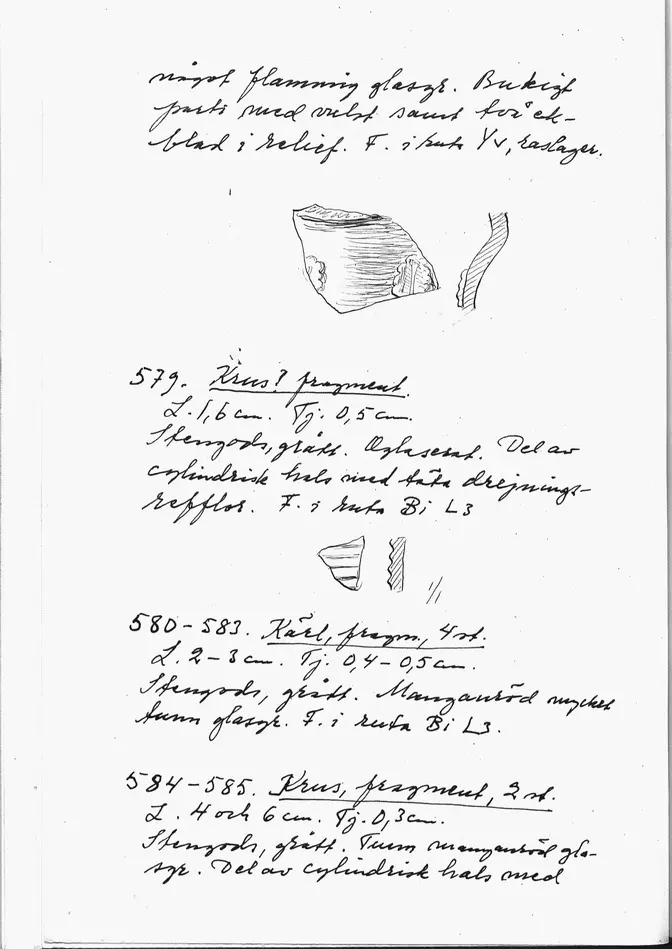 något flammig glasyr. Bukigt
parti med vulst samt tvåek-
blad i relief. F. i ruta Yv, raslager.
579. Krus? fragment.
L. 1,6 cm. Tj. 0,5 cm.
Stengods, grått. Oglaserat. Del av
cylindrisk hals med täta drejnings-
refflor. F. i ruta Bi L3
1/1
580-583. Kärl, fragm., 4 st.
L. 2-3 cm. Tj. 0,4-0,5 cm.
Stengods, grått. Manganröd mycket
tunn glasyr. F. i ruta Bi L3.
584-585. Krus, fragment, 2 st.
L. 4 och 6 cm. Tj. 0,3 cm.
Stengods, grått. Tunn manganröd gla-
syr. Del av cylindrisk hals med